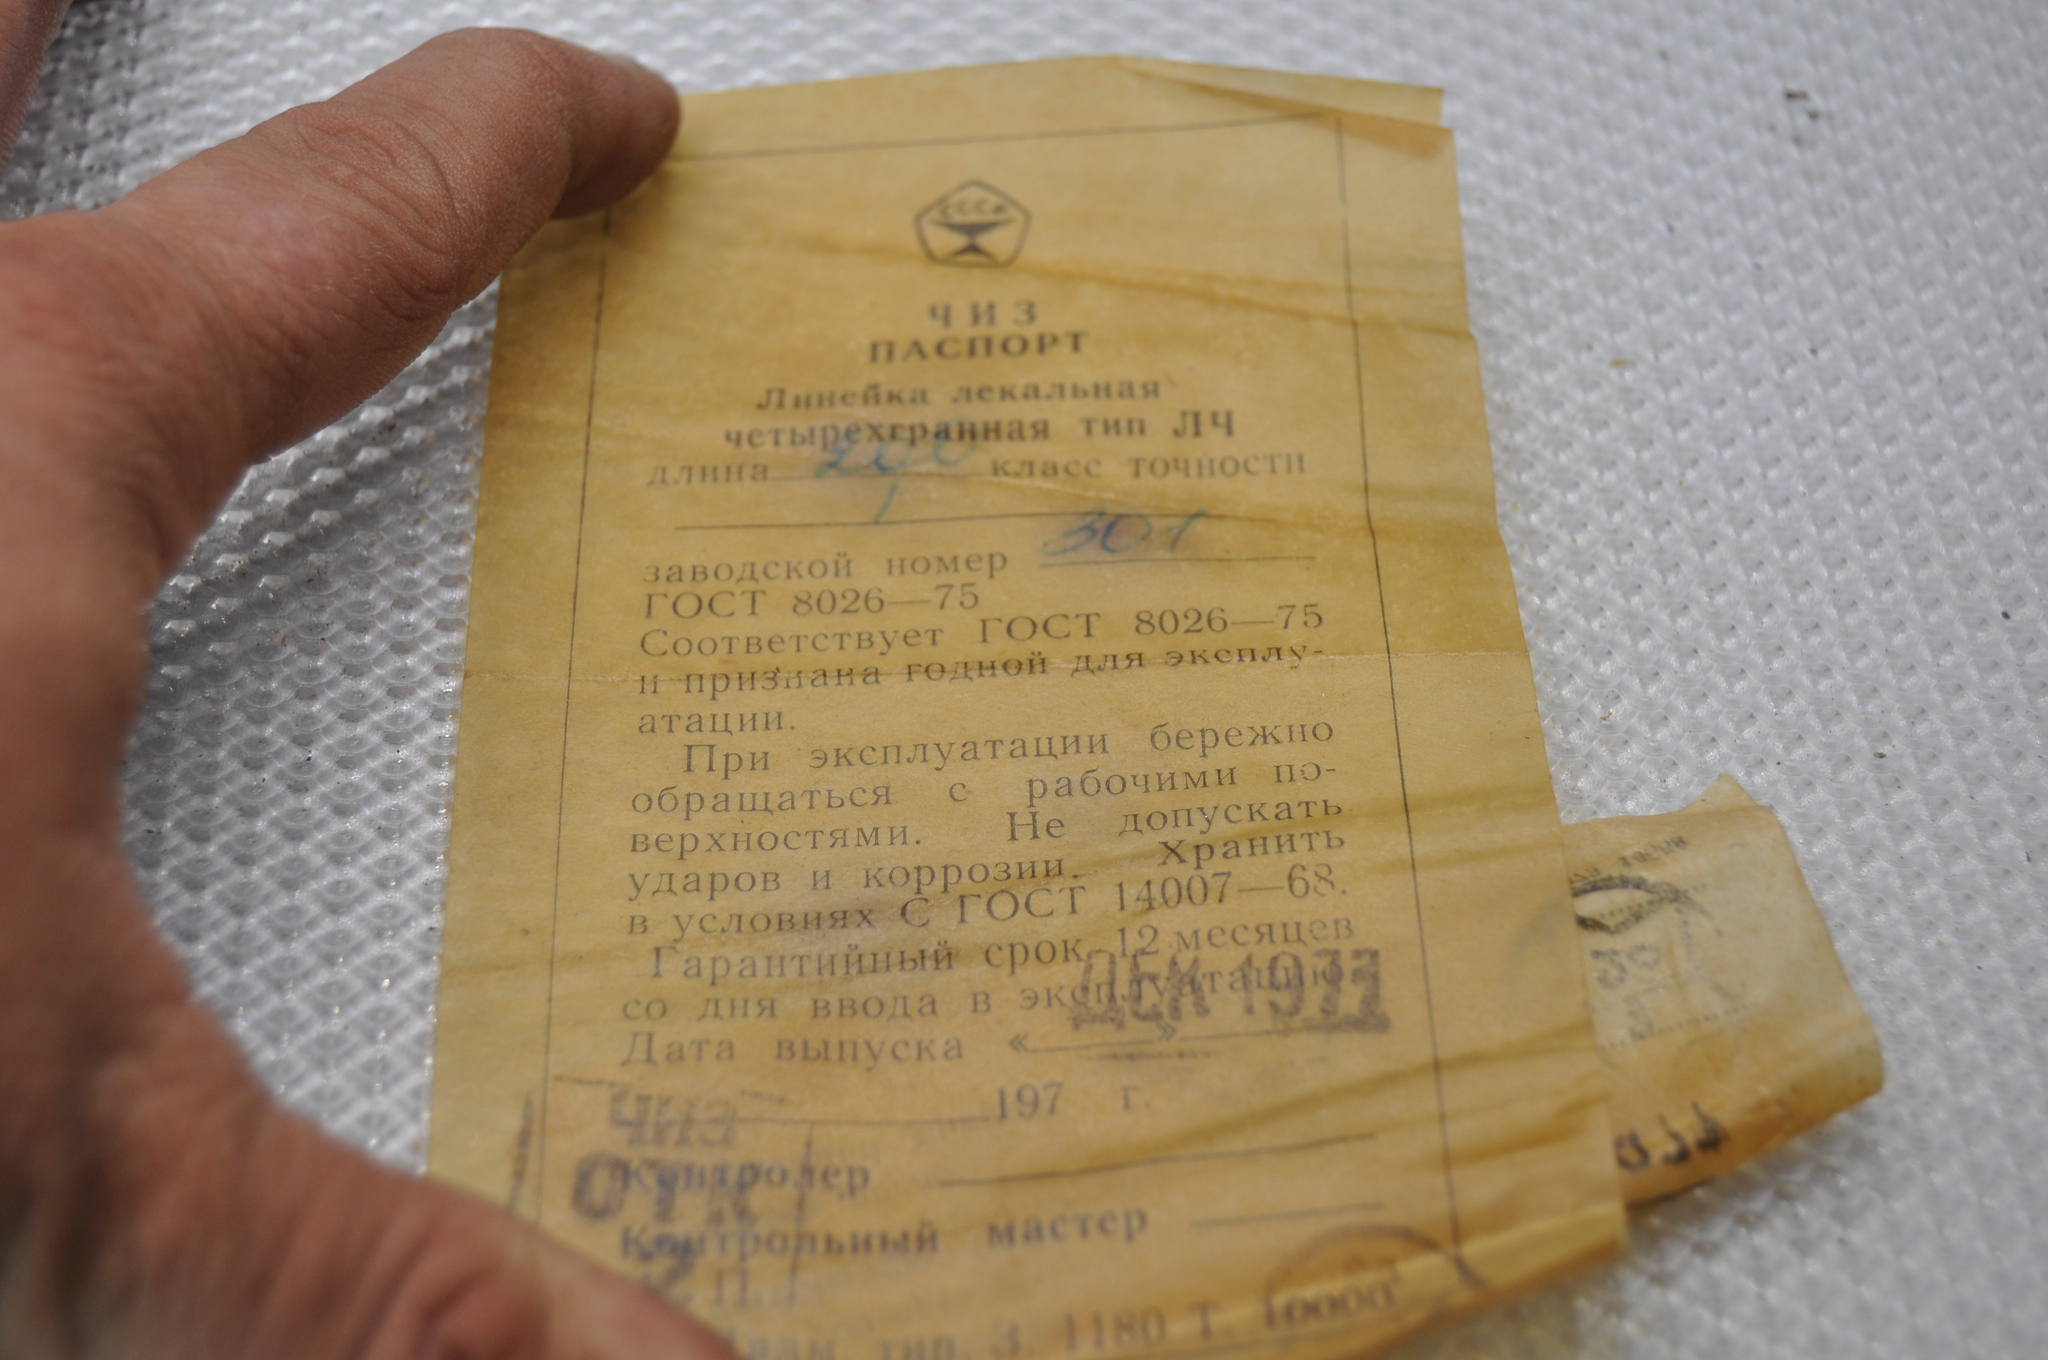 ЧИЗ
ПАСПОРТ
Линейка лекальная
четырехгранная тип ЛЧ
длина 200 класс точности
1
заводской номер 301
ГОСТ 8026—75
Соответствует ГОСТ 8026—75
и признана годной для эксплу-
атации.
При эксплуатации бережно
обращаться с рабочими по-
верхностями. Не допускать
ударов и коррозии. Хранить
в условиях С ГОСТ 14007—68.
Гарантийный срок 12 месяцев
со дня ввода в эксплуатацию
ДЕК 1977
Дата выпуска « »
197 г.
ЧИЗ
Контролер
ОТК
Контрольный мастер
2
тип. З. 1180 Т. 10000